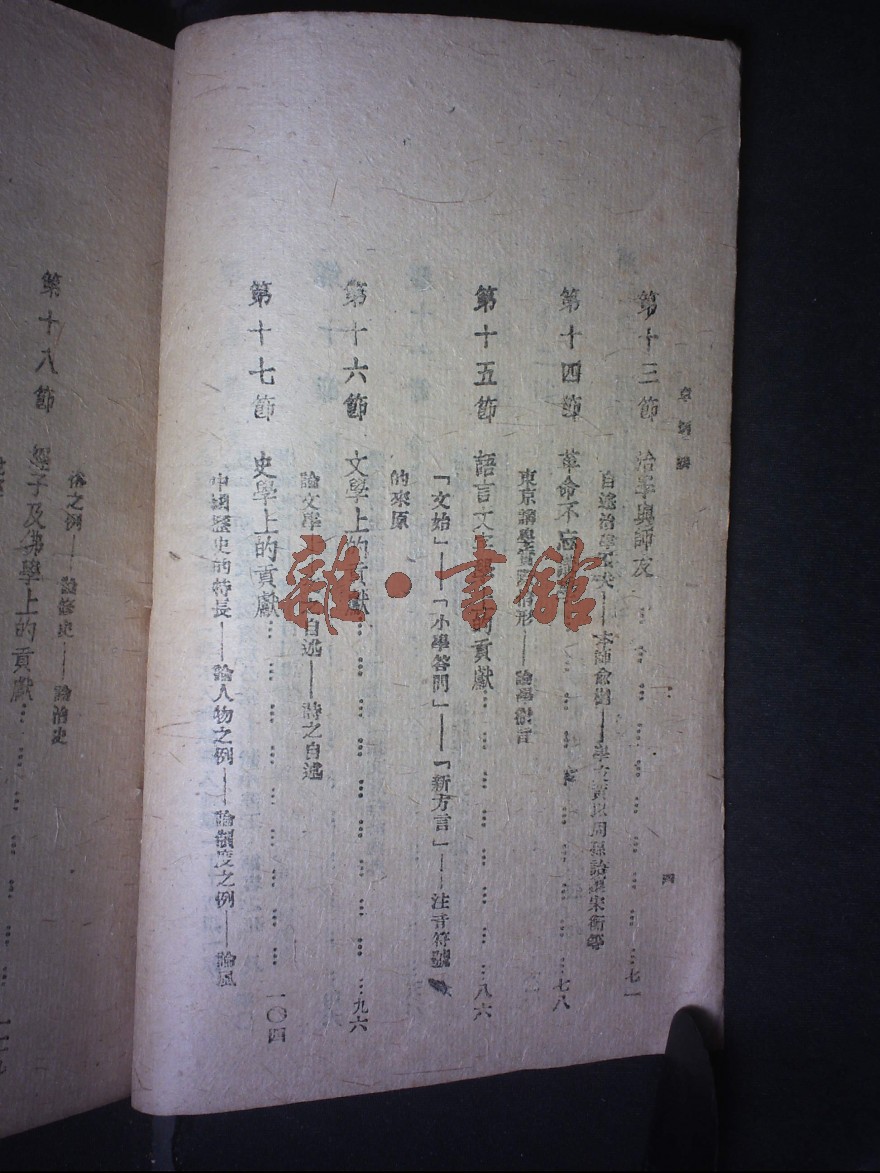 章炳麟
四
第十三節 治學與師友……七一
自述治學——本師俞樾——學友黃以周孫詒讓宋衡等
第十四節 革命不忘講……七八
東京講學實際情形——論學微言
第十五節 語言文字學的貢獻……八六
「文始」——「小學答問」——「新方言」——注音符號
的來原
第十六節 文學上的貢獻……九六
論文學自述——詩之自述
第十七節 史學上的貢獻……一〇四
中國歷史的特長——論人物之例——論制度之例——論風
俗之例——論修史——論治史
第十八節 經子及佛學上的貢獻……一一九
雜·書館